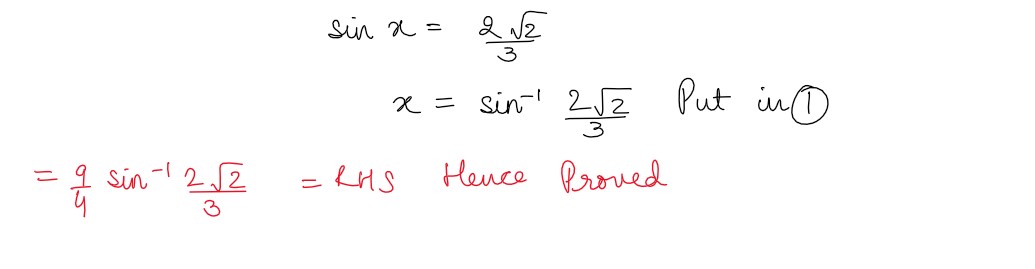 sin x = 2√2/3
x = sin⁻¹ 2√2/3 Put in ①
= 9/4 sin⁻¹ 2√2/3 = RHS Hence Proved